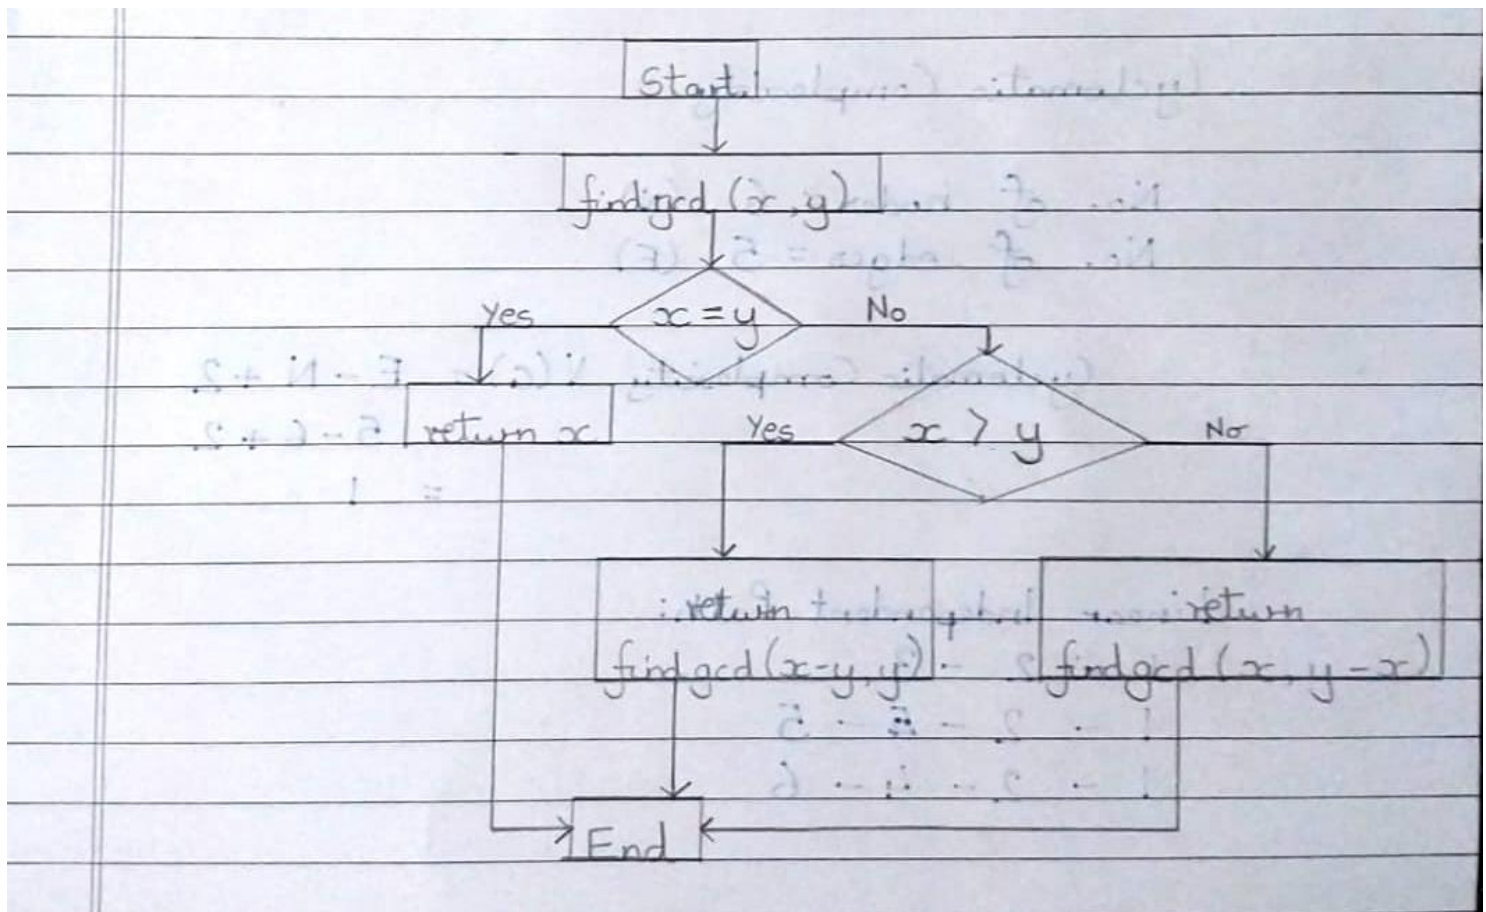 Start
findgcd (x, y)
Yes
x = y
No
return x
Yes
x > y
No
return
findgcd (x-y, y)
return
findgcd (x, y-x)
End